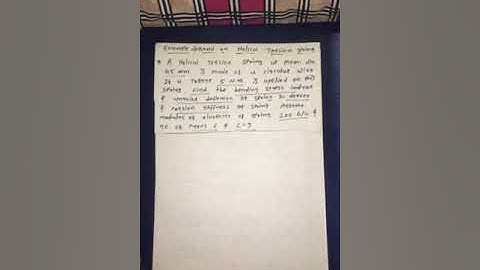 Example based on Helical Torsion spring
* A Helical Torsion spring of mean dia
45 mm & made of a circular wire
If a torque 5 N-m & applied on this
spring find the bending stress induced
& deflection of spring in degree
& torsion stiffness of spring Assume
modulus of elasticity of spring 200 &
no. of turns 6 & C=